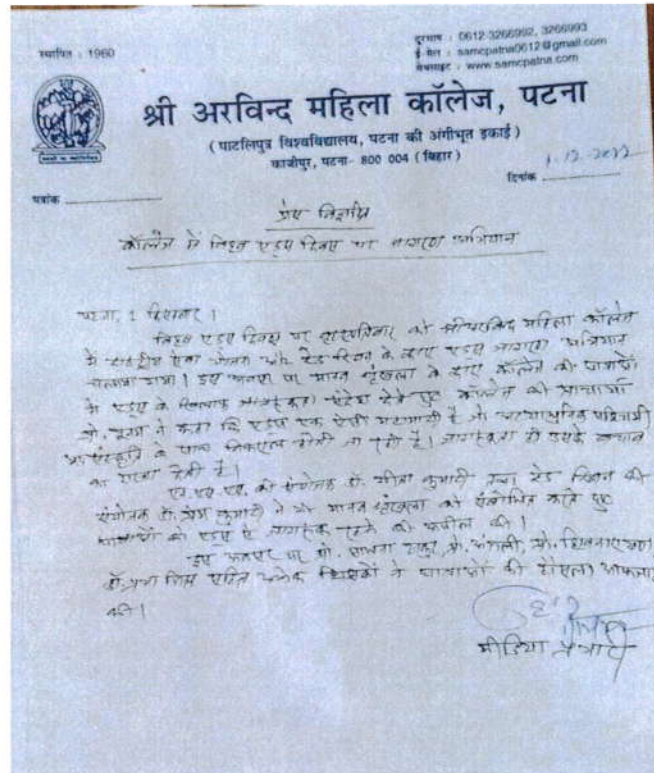 स्थापित : 1960
दूरभाष : 0612-3266992, 3266993
ई-मेल : samcpatna0612@gmail.com
वेबसाइट : www.samcpatna.com
श्री अरविन्द महिला कॉलेज, पटना
(पाटलिपुत्र विश्वविद्यालय, पटना की अंगीभूत इकाई)
काजीपुर, पटना- 800 004 (बिहार)
पत्रांक
दिनांक 1-12-2022
प्रेस विज्ञप्ति
कॉलेज में विश्व एड्स दिवस पर जागरण अभियान
पटना, 1 दिसम्बर ।
विश्व एड्स दिवस पर को श्रीअरविंद महिला कॉलेज
में राष्ट्रीय सेवा योजना रेड रिबन के द्वारा एड्स जागरण अभियान
चलाया गया। इस अवसर पर मानव श्रृंखला के द्वारा कॉलेज की छात्राओं
के एड्स के खिलाफ जागरूकता संदेश देते हुए कॉलेज की प्राचार्या
प्रो. ने कहा कि एड्स एक ऐसी महामारी है जो
के साथ होती जा रही है। जागरूकता ही उसके बचाव
का रास्ता है।
एन.एस.एस. की संयोजक डॉ. कुमारी तथा रेड रिबन की
संयोजक डॉ. कुमारी ने भी मानव श्रृंखला को संबोधित करते हुए
छात्राओं को एड्स से जागरूक रहने की अपील की।
इस अवसर पर प्रो. साधना ठाकुर, प्रो. अंजली, प्रो.
डॉ. सहित अनेक शिक्षकों ने छात्राओं की हौसला आफजाई
की।
मीडिया प्रभारी